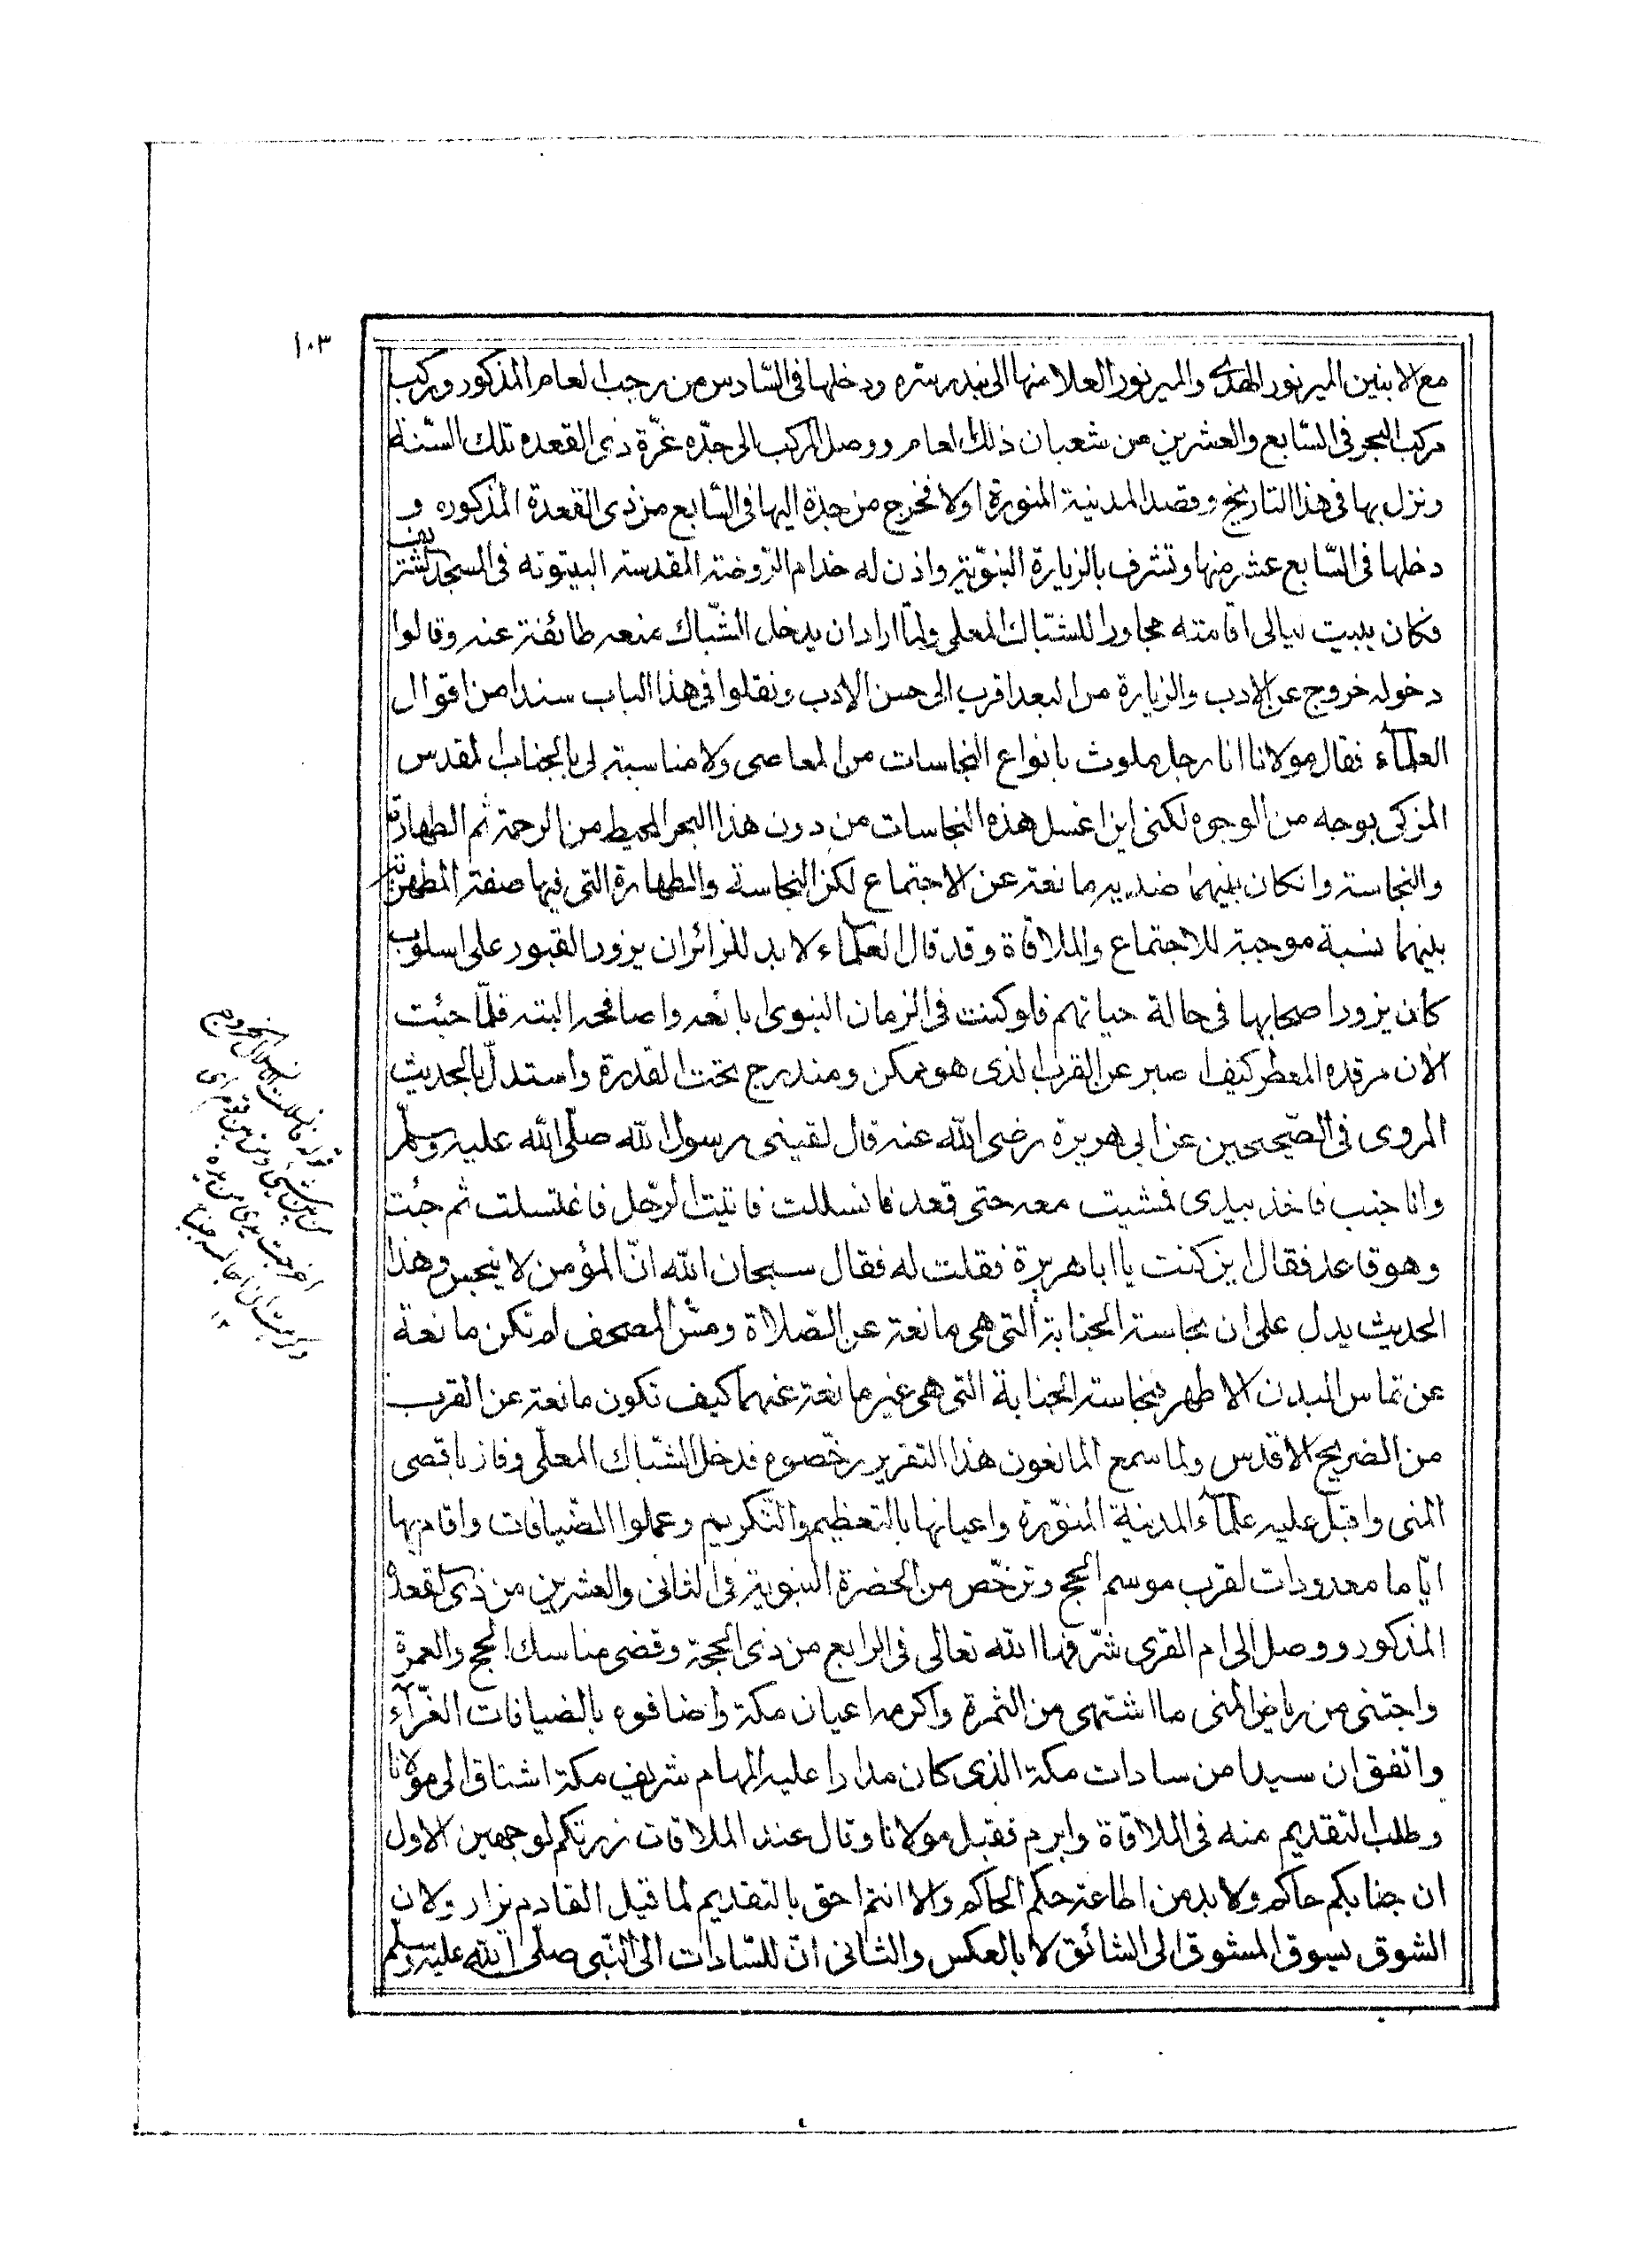 ١٠٣
مع الابنين المير نور الهدى والمير نور العلا منها الى بندر سرت ودخلها فى السّادس من رجب العام المذكور وركب
مركب البحر فى السّابع والعشرين من شعبان ذلك العام ووصل المركب الى جدّه غرّة ذى القعده تلك السّنة
ونزل بها فى هذا التاريخ وقصد المدينة المنورة اولا فخرج من جدّة اليها فى السّابع من ذى القعدة المذكوره و
دخلها فى السّابع عشر منها وتشرف بالزيارة النبّوية واذن له خدام الرّوضة المقدسة البيتوته فى المسجد الشريف
فكان يبيت ليالى اقامته مجاورا للشبّاك المعلى ولمّا اراد ان يدخل الشّباك منعه طائفة عنه وقالوا
دخوله خروج عن الادب والزيارة من البعد اقرب الى حسن الادب ونقلوا فى هذا الباب سندا من اقوال
العلمآء فقال مولانا انا رجل ملوث بانواع النجاسات من المعاصى ولا مناسبة لى بالجناب المقدس
المزكى بوجه من الوجوه لكنى اين اغسل هذه النجاسات من دون هذا البحر المحيط من الرحمة ثم الطهارة
والنجاسة وانكان بينهما ضدية مانعة عن الاجتماع لكن النجاسة والطهارة التى فيها صفة المطهرية
بينهما نسبة موجبة للاجتماع والملاقاة وقد قال العلمآء لا بد للزائر ان يزور القبور على اسلوب
كان يزور اصحابها فى حالة حياتهم فلو كنت فى الزمان النبوى ابايعه واصافحه البته فلمّا جئت
الآن مرقده المعطر كيف اصبر عن القرب الذى هو ممكن ومندرج تحت القدرة واستدلّ بالحديث
المروى فى الصّحيحين عن ابى هريرة رضى الله عنه قال لقينى رسول الله صلّى الله عليه وسلّم
وانا جنب فاخذ بيدى فمشيت معه حتى قعد فانسللت فاتيت الرّحل فاغتسلت ثم جئت
وهو قاعد فقال اين كنت يا ابا هريرة فقلت له فقال سبحان الله انّ المؤمن لا ينجس وهذا
الحديث يدل على ان نجاسة الجنابة التى هى مانعة عن الصّلاة ومسّ المصحف لم تكن مانعة
عن تماس البدن الاطهر فنجاسة الجنابة التى هى غير مانعة عنهما كيف تكون مانعة عن القرب
من الضريح الاقدس ولما سمع المانعون هذا التقرير رخّصوه فدخل الشبّاك المعلّى وفاز باقصى
المنى واقبل عليه علمآء المدينة المنوّرة واعيانها بالتعظيم والتّكريم وعملوا الضّيافات واقام بها
ايّاما معدودات لقرب موسم الحج وترخّص من الحضرة النبوية فى الثانى والعشرين من ذى القعدة
المذكور ووصل الى ام القرى شرّفها الله تعالى فى الرابع من ذى الحجة وقضى مناسك الحج والعمرة
واجتنى من رياض المنى ما اشتهى من الثمرة واكرمه اعيان مكة واضافوه بالضيافات الغرّآء
واتّفق ان سيدا من سادات مكة الذى كان مدارا عليه المهام شريف مكة اشتاق الى مولانا
وطلب التقديم منه فى الملاقاة وابرم فقبل مولانا وقال عند الملاقات زرتكم لوجهين الاول
ان جنابكم حاكم ولا بد من اطاعة حكم الحاكم والا انتم احق بالتقديم لما قيل القادم يزار ولان
الشوق يسوق المشوق الى الشائق لا بالعكس والثانى انّ للسّادات الى النّبى صلّى الله عليه وسلّم